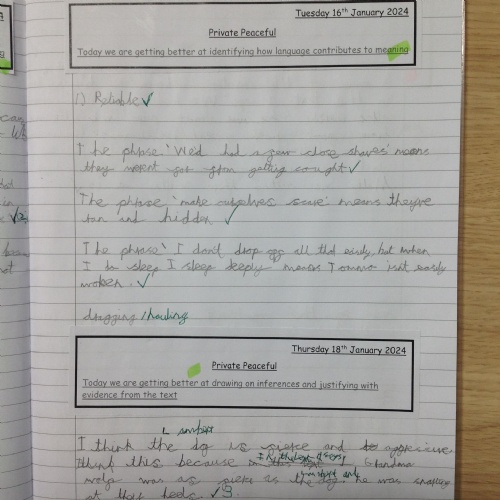 Tuesday 16th January 2024
Private Peaceful
Today we are getting better at identifying how language contributes to meaning
1) Reliable ✓
The phrase 'We'd had a few close shaves' means
they weren't far from getting caught ✓
The phrase 'make ourselves scarse' means they've
ran and hidden ✓
The phrase 'I don't drop off all that easily, but when
I do sleep I sleep deeply means Tommo isn't easily
woken. ✓
dragging /hauling
Thursday 18th January 2024
Private Peaceful
Today we are getting better at drawing on inferences and justifying with
evidence from the text
I think the dog is fierce and aggressive
think this because Grandma
was as fierce as the dog he was snapping
at their heels ✓